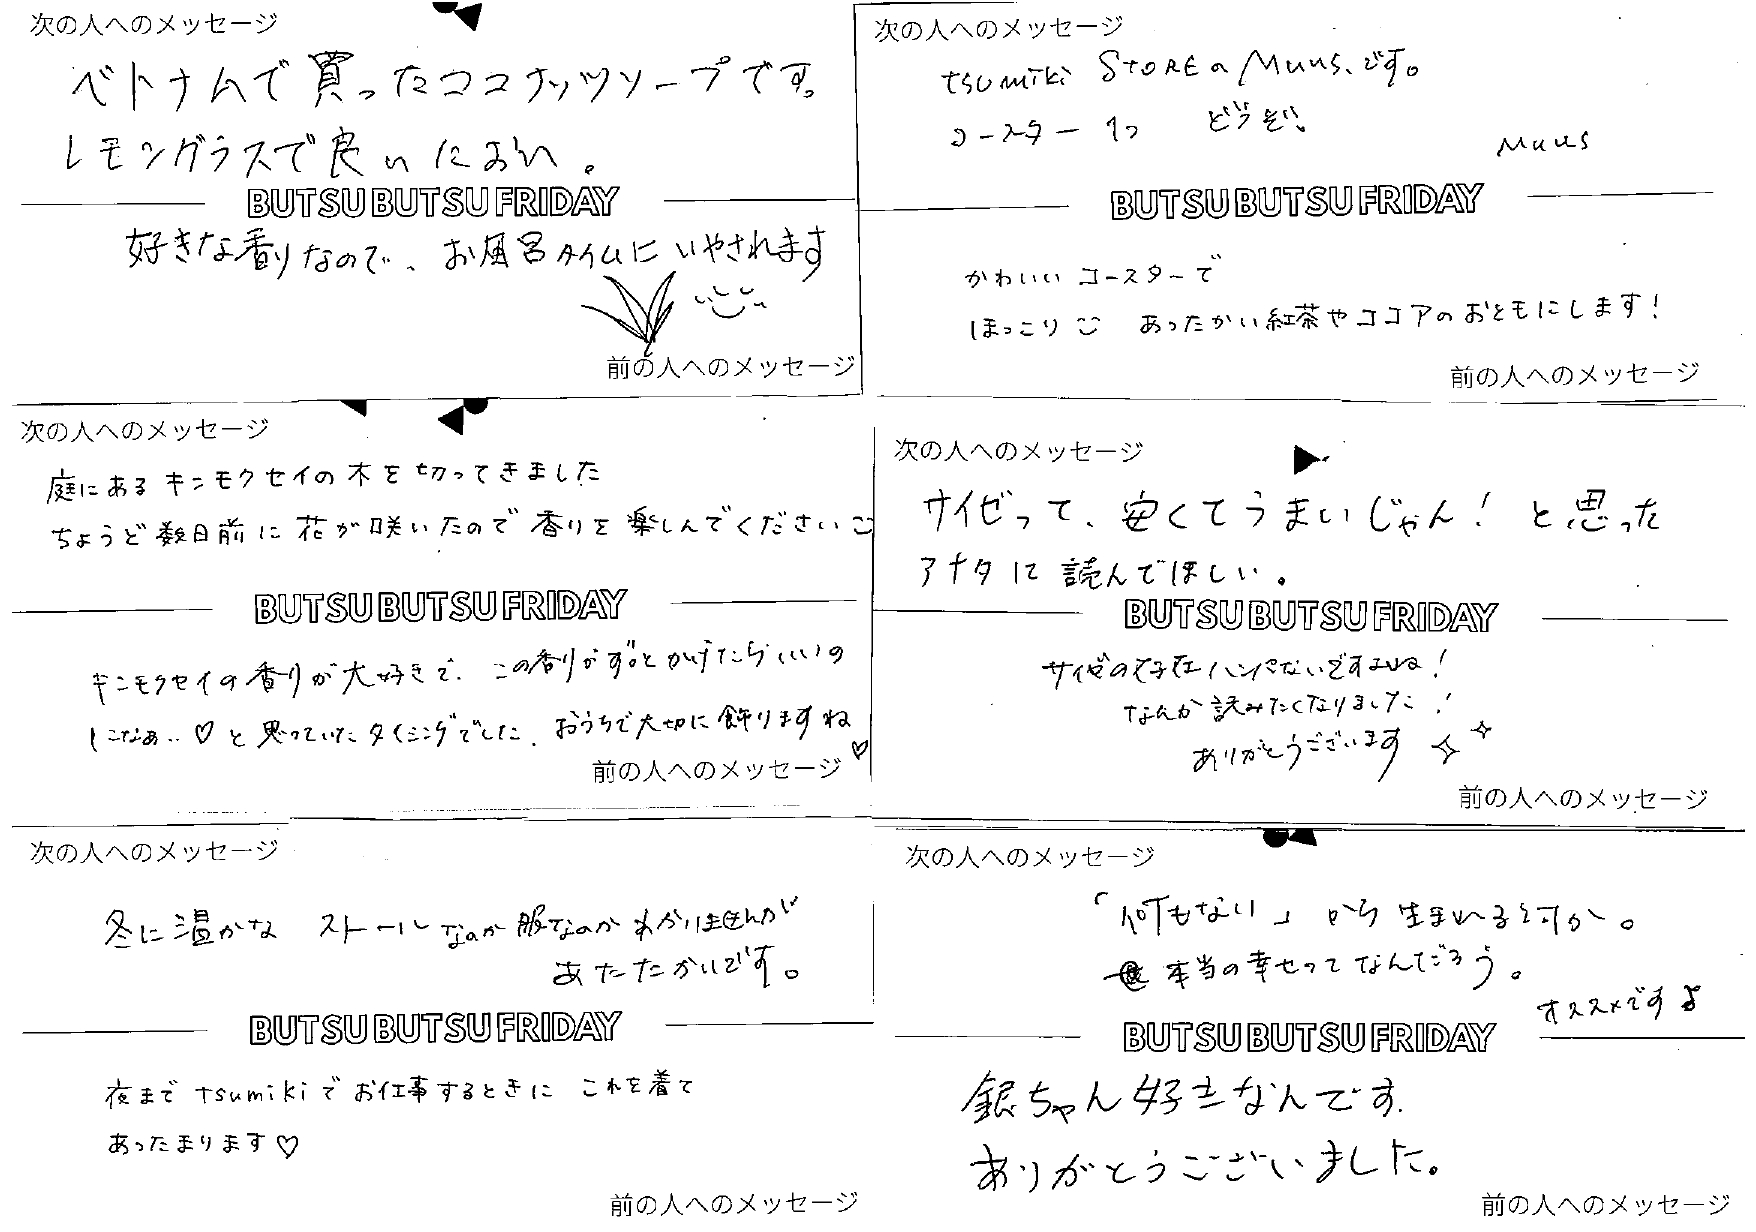 次の人へのメッセージ
ベトナムで買ったココナッツソープです。
レモングラスで良いにおい。
BUTSUBUTSU FRIDAY
好きな香りなので、お風呂タイムにいやされます
前の人へのメッセージ
次の人へのメッセージ
tsumiki STOREの Muus.です。
コースター 1つ どうぞ。
Muus
BUTSUBUTSU FRIDAY
かわいい コースターで
ほっこり あったかい紅茶やココアのおともにします!
前の人へのメッセージ
次の人へのメッセージ
庭にある キンモクセイの木を切ってきました
ちょうど数日前に花が咲いたので香りを楽しんでください
BUTSUBUTSU FRIDAY
キンモクセイの香りが大好きで、この香りがずっとかげたらいいの
になぁ..♡と思っていたタイミングでした、おうちで大切に飾りますね♡
前の人へのメッセージ
次の人へのメッセージ
サイゼって、安くてうまいじゃん! と思った
アナタに読んでほしい。
BUTSUBUTSU FRIDAY
サイゼの存在ハンパないですよね!
なんか読みたくなりました!
ありがとうございます
前の人へのメッセージ
次の人へのメッセージ
冬に温かな ストールなのか服なのかわかりませんが
あたたかいです。
BUTSUBUTSU FRIDAY
夜まで tsumikiでお仕事するときに これを着て
あったまります♡
前の人へのメッセージ
次の人へのメッセージ
「何もない」から生まれる何か。
本当の幸せってなんだろう。
オススメですよ
BUTSUBUTSU FRIDAY
銀ちゃん好きなんです.
ありがとうございました。
前の人へのメッセージ